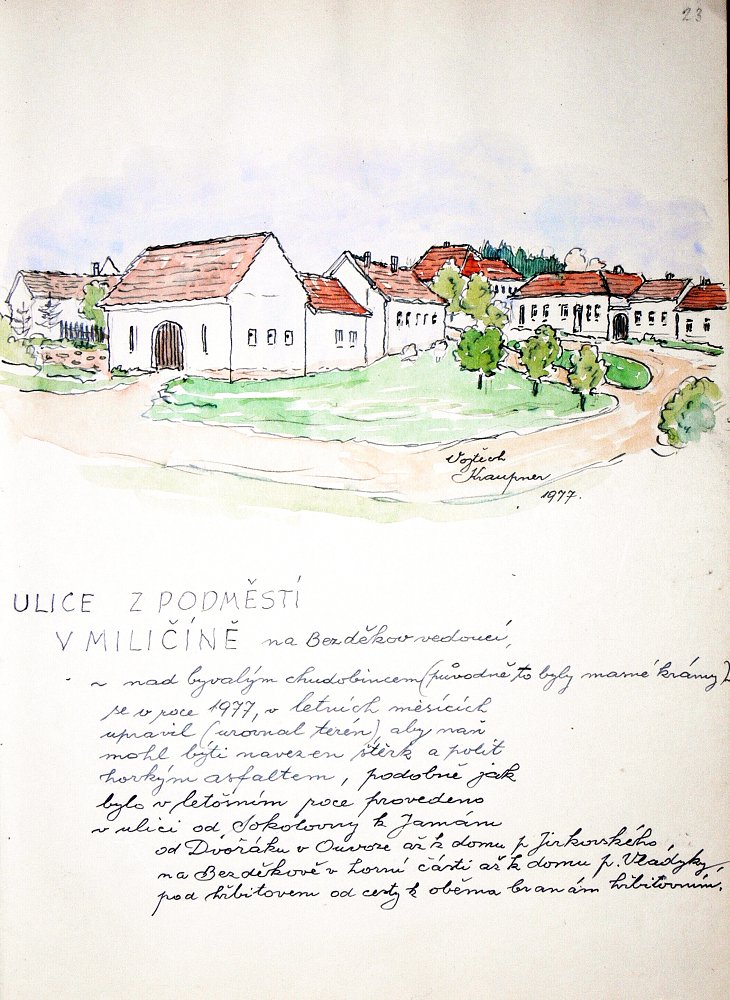 23
Vojtěch
Kraupner
1977.
ULICE Z PODMĚSTÍ
V MILIČÍNĚ na Bezděkov vedoucí,
~ nad byvalým chudobincem (původně to byly masné krámy)
se v roce 1977, v letních měsících
upravil (urovnal terén), aby naň
mohl býti navezen štěrk a polit
horkým asfaltem, podobně jak
bylo v letošním roce provedeno
v ulici od Sokolovny k Jamám
od Dvořáku v Ouvoze až k domu p. Jirkovského,
na Bezděkově v horní části až k domu p. Vládyky,
pod hřbitovem od cesty k oběma branám hřbitovním.